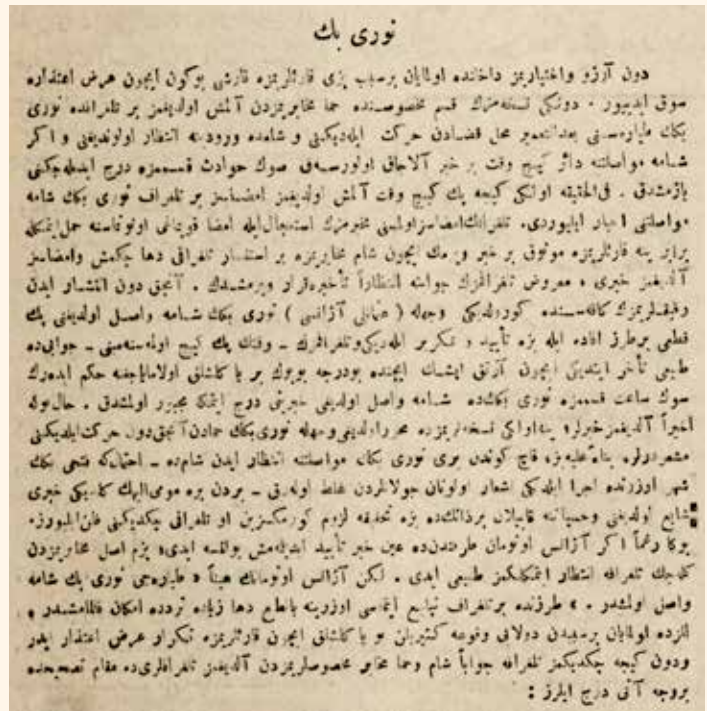 نوری بك
دون آرزو واختیاریمز داخلنده اولمایان برسبب بزی قارئلریمزه قارشی بوكون ایچون عرض اعتذاره
سوق ایدییور . دونكی نسخه‌مزك قسم مخصوصنده حما مخابریمزدن آلمش اولدیغمز بر تلغرافده نوری
بكك طیاره‌سنی بعدالتعمیر محل قضادن حركت ایله‌دیكنی و شامده ورودینه انتظار اولوندیغنی و اكر
شامه مواصلتنه دائر كیچ وقت بر خبر آلاجق اولورسه‌ق صوك حوادث قسممزده درج ایده‌جكمزی
یازمشدق . فی‌الحقیقه اولكی كیجه پك كیچ وقت آلمش اولدیغمز امضاسز بر تلغراف نوری بكك شامه
مواصلتنی اخبار ایلیوردی. تلغرافك امضاسز اولمسنی مخبرمزك استعجال ایله امضا قویمانی اونوتماسنه حمل ایتمكله
برابر ینه قارئلریمزه موثوق بر خبر ویرمك ایچون شام مخابریمزه بر استفسار تلغرافی دها چكمش وامضاسز
آلدیغمز خبری ، معروض تلغرافمزك جوابنه انتظاراً تأخیره قرار ویرمشدك . آنجق دون انتشار ایدن
رفیقلریمزك كافه‌سنده كورولدیكی وجهله ( عثمانلی آژانسی ) نوری بكك شامه واصل اولدیغنی پك
قطعی برطرز افاده ایله بزه تأیید و تكریر ایله‌دیكی وتلغرافمزك ــ وقتك پك كیچ اولمه‌سنه مبنی ــ جوابی ده
طبیعی تأخر ایتدیكی ایچون آرتق ایشك ایچنده بودرجه بویوك بر یا كلشلق اولامایاجغنه حكم ایده‌رك
صوك ساعت قسممزه نوری بكك‌ده شامه واصل اولدیغی خبرینی درج ایتمكه مجبور اولمشدق . حال‌بوكه
اخیراً آلدیغمز خبرلر، ینه اولكی نسخه‌لریمزده محرر اولدیغی وجهله نوری بكك حمادن آنجق دون حركت ایلدیكنی
مشعردرلر. بناءً علیه ، قاچ كوندن بری نوری بكك مواصلتنه انتظار ایدن شام‌ده ــ احتمال كه فتحی بكك
شهر اوزرنده اجرا ایلدیكی اشعار اولونان جولانلردن غلط اوله‌رق ــ بردن بره مومی‌الیهك كلدیكی خبری
شایع اولدیغی وحسیاتنه قاپیلان برذاتك‌ده بزه تحقیقه لزوم كورمكسزین او تلغرافی چكدیكنی ظن ایلیورز.
بوكا رغماً اكر آژانس اوتومان طرفندن‌ده عین خبر تأیید ایدیله‌مش بولنسه ایدی، بزم اصل مخابریمزدن
كله‌جك تلغرافه انتظار ایتمكلكمز طبیعی ایدی . لكن آژانس اوتومانك عیناً « طیاره‌جی نوری بك شامه
واصل اولمشدر . » طرزنده برتلغراف تبلیغ ایتمه‌سی اوزرینه بالطبع دها زیاده تردده امكان قالمامشدر ،
المزده اولمایان برسببدن دولایی وقوعه كتیریلن بو یا كلشلق ایچون قارئلریمزه تكرار عرض اعتذار ایدر
ودون كیجه چكدیكمز تلغرافه جواباً شام وحما مخابر مخصوصلریمزدن آلدیغمز تلغرافلری‌ده مقام تصحیحده
بروجه آتی درج ایلرز :